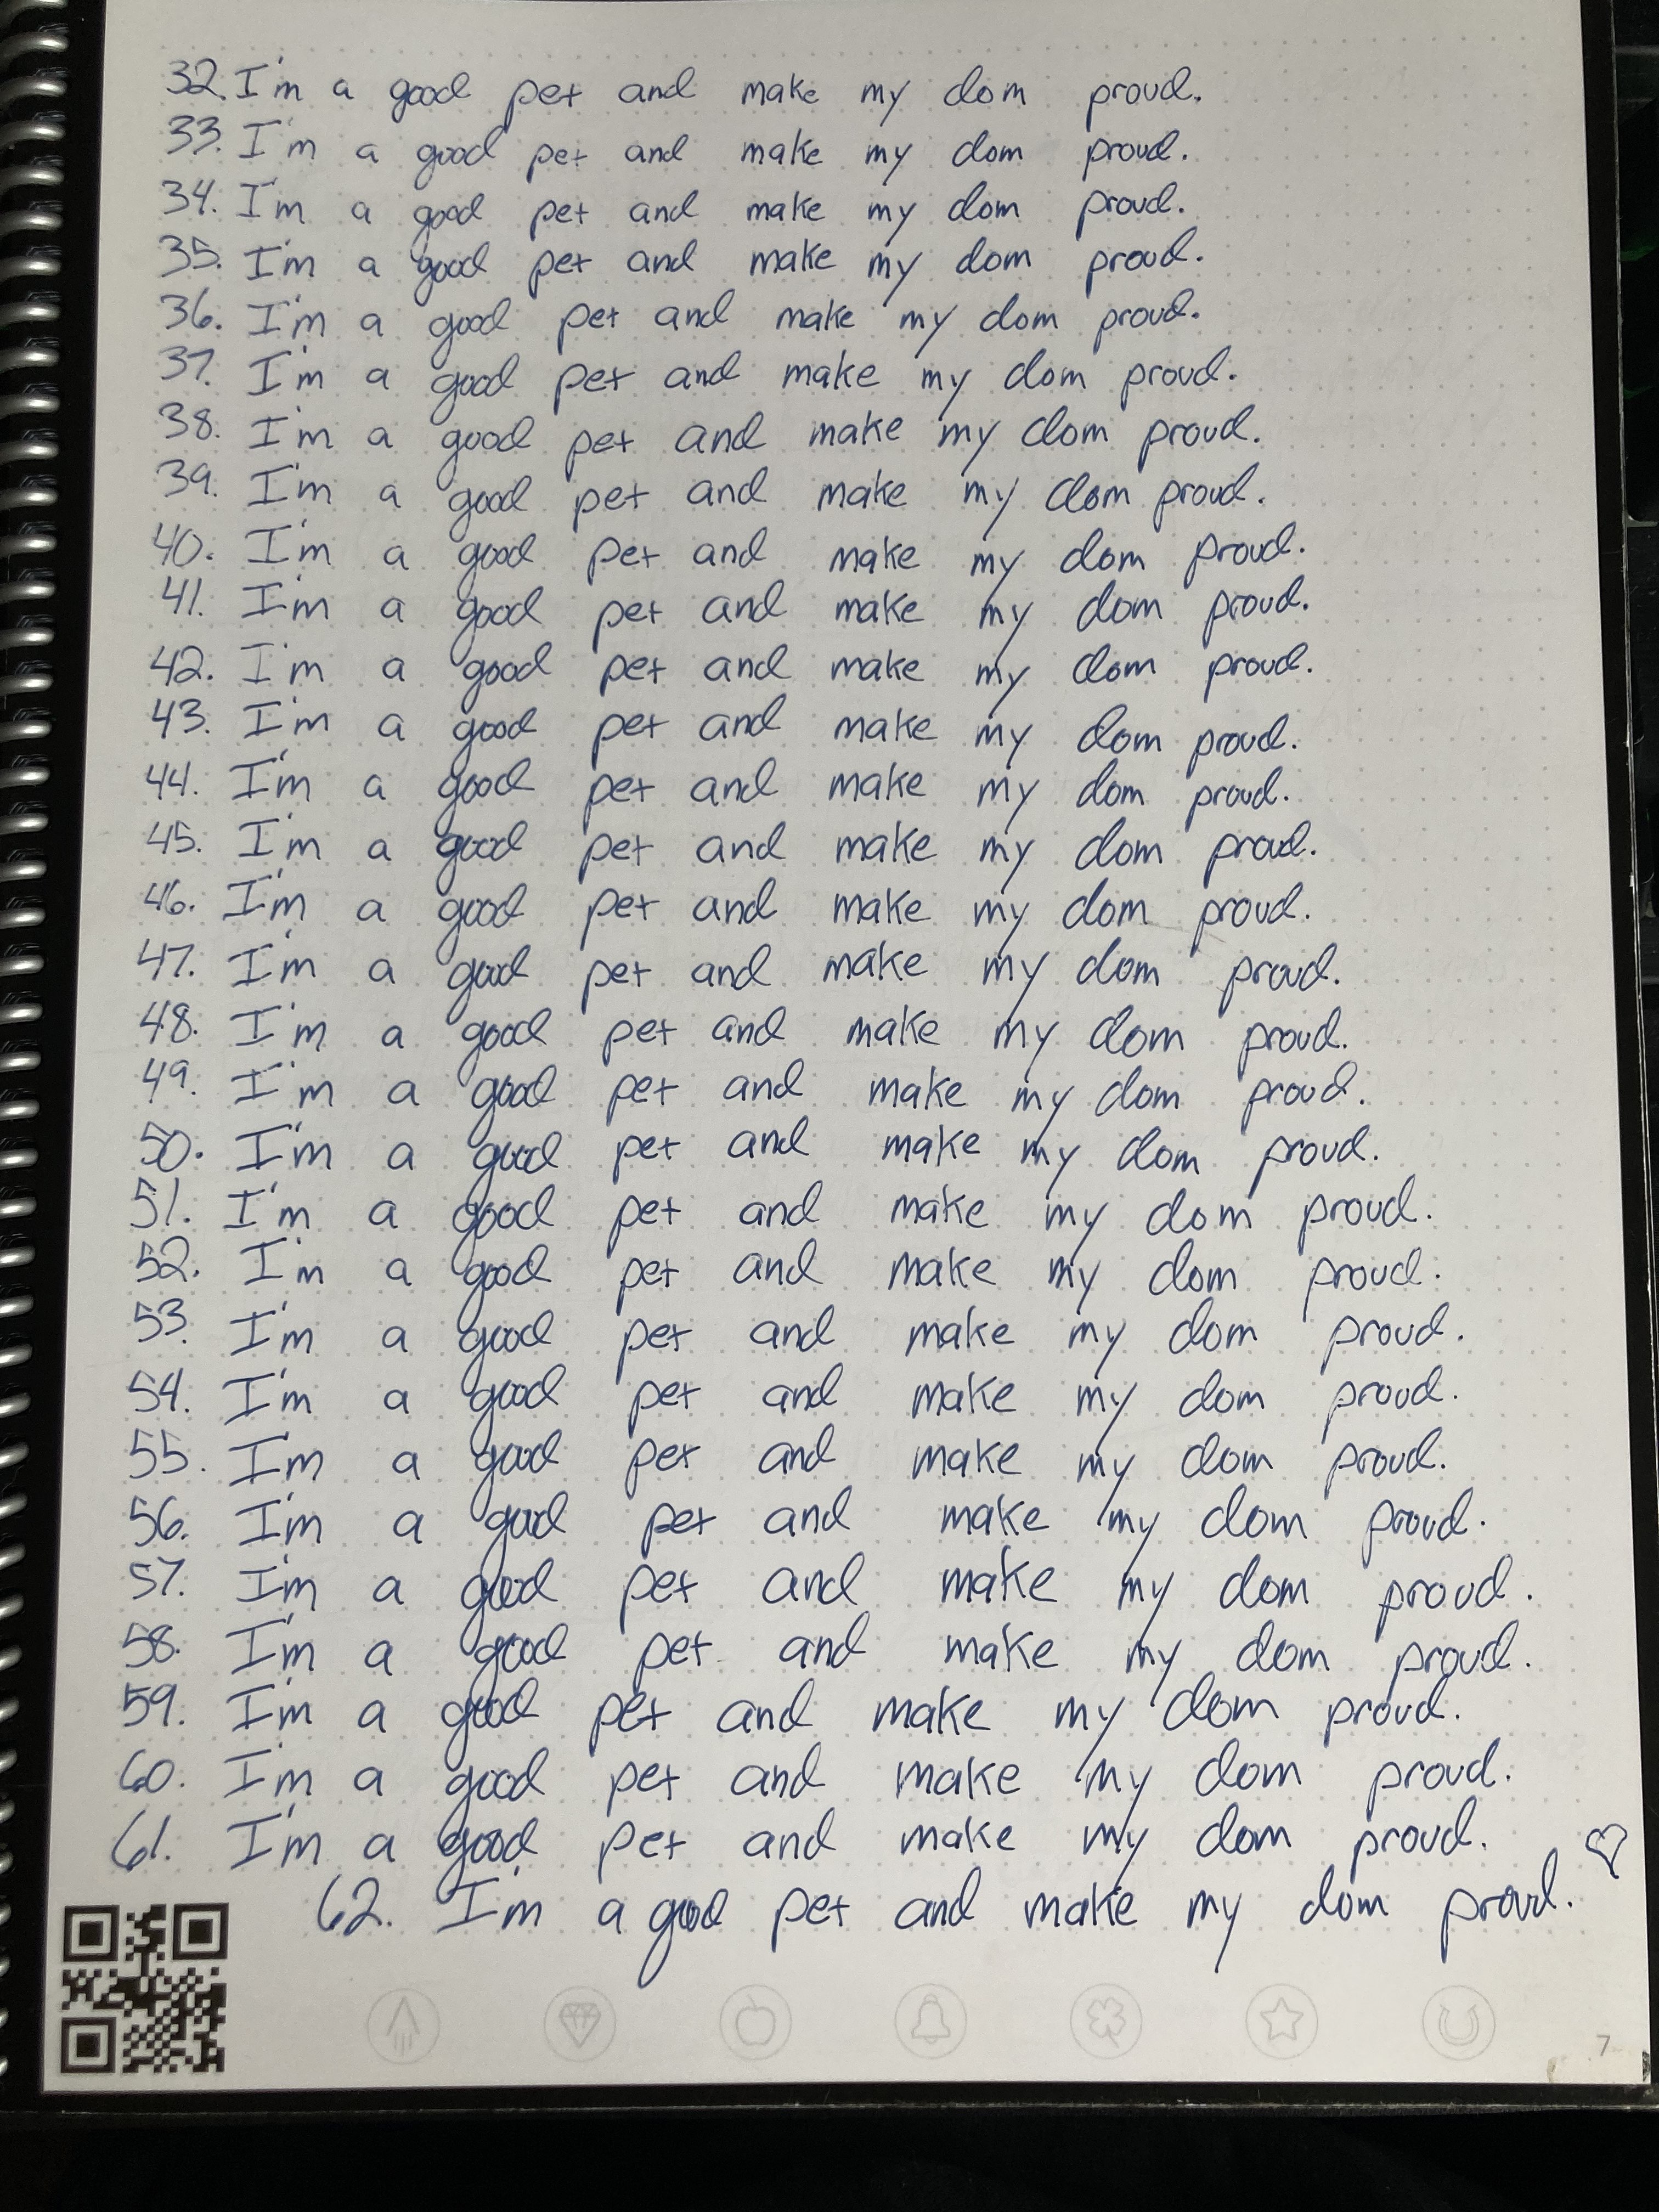 32. I'm a good pet and make my dom proud.
33. I'm a good pet and make my dom proud.
34. I'm a good pet and make my dom proud.
35. I'm a good pet and make my dom proud.
36. I'm a good pet and make my dom proud.
37. I'm a good pet and make my dom proud.
38. I'm a good pet and make my dom proud.
39. I'm a good pet and make my dom proud.
40. I'm a good pet and make my dom proud.
41. I'm a good pet and make my dom proud.
42. I'm a good pet and make my dom proud.
43. I'm a good pet and make my dom proud.
44. I'm a good pet and make my dom proud.
45. I'm a good pet and make my dom proud.
46. I'm a good pet and make my dom proud.
47. I'm a good pet and make my dom proud.
48. I'm a good pet and make my dom proud.
49. I'm a good pet and make my dom proud.
50. I'm a good pet and make my dom proud.
51. I'm a good pet and make my dom proud.
52. I'm a good pet and make my dom proud.
53. I'm a good pet and make my dom proud.
54. I'm a good pet and make my dom proud.
55. I'm a good pet and make my dom proud.
56. I'm a good pet and make my dom proud.
57. I'm a good pet and make my dom proud.
58. I'm a good pet and make my dom proud.
59. I'm a good pet and make my dom proud.
60. I'm a good pet and make my dom proud.
61. I'm a good pet and make my dom proud.
62. I'm a good pet and make my dom proud. ♡
7